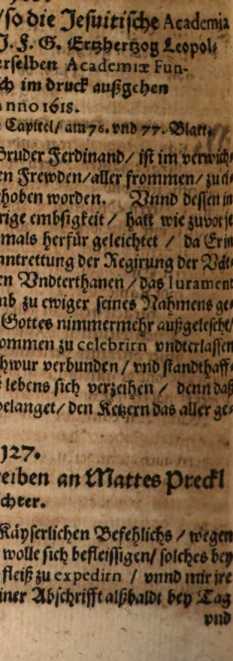 /so die Jesuitische Academia
J. F. G. Ertzhertzog Leopol⸗
erselben Academiæ Fun-
ch im druck außgehen
anno 1618.
Capitel/ am 76. vnd 77. Blatt.
Bruder Ferdinand/ ist im verwich⸗
en Frewden/aller frommen/
hoben worden. Vnnd dessen in
rige embsigkeit / hatt wie zuvor
mals herfür geleichtet / da
anntrettung der Regirung der
en Vndterthanen / das Iurament
mb zu ewiger seines Nahmens ge⸗
Gottes nimmermehr außgelescht/
ommen zu celebrirn vndterlassen
chwur verbunden / vnd standthaff⸗
s lebens sich verzeihen / denn daß
belanget/ den Ketzern das aller ge⸗
127.
reiben an Mattes Preckl
chter.
Käyserlichen Befehlichs / wegen
wolle sich befleissigen/ solches bey
fleiß zu expedirn / vnnd mir jre
iner Abschrifft alßbaldt bey Tag
vnd